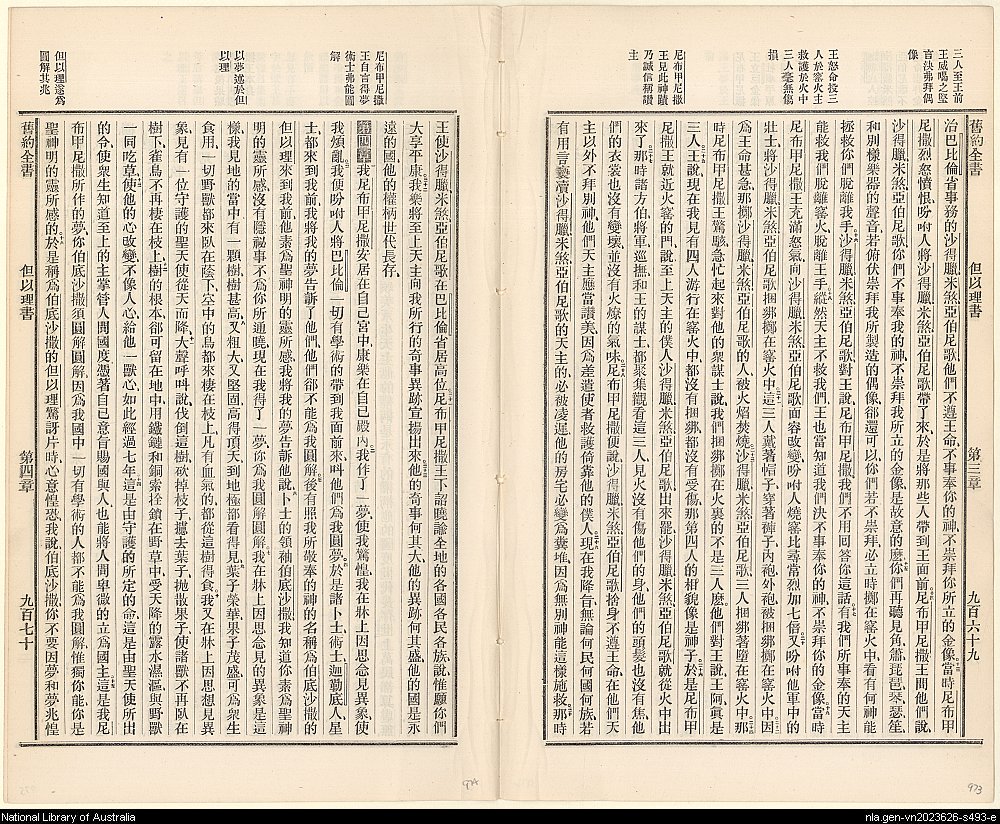 三人至王前
王威嚇之堅
言決弗拜偶
像
王怒命投三
人於窰火主
救護於火中
三人毫無傷
損
尼布甲尼撒
王見此神蹟
乃誠信稱讚
主
舊約全書 但以理書 第三章 九百六十九
治巴比倫省事務的沙得臘米煞亞伯尼歌他們不遵王命不事奉你的神不崇拜你所立的金像當時尼布甲
尼撒烈怒憤恨吩咐人將沙得臘米煞亞伯尼歌帶了來於是將那些人帶到王面前尼布甲尼撒王問他們說
沙得臘米煞亞伯尼歌你們不事奉我的神不崇拜我所立的金像是故意的麼你們再聽見角簫琵琶琴瑟笙
和別樣樂器的聲音若俯伏崇拜我所製造的偶像卻還可以你們若不崇拜必立時擲在窰火中看有何神能
拯救你們脫離我手沙得臘米煞亞伯尼歌對王說尼布甲尼撒我們不用回答你這話有我們所事奉的天主
能救我們脫離窰火脫離王手縱然天主不救我們王也當知道我們決不事奉你的神不崇拜你的金像當時
尼布甲尼撒王充滿怒氣向沙得臘米煞亞伯尼歌面容改變吩咐人燒窰比尋常烈加七倍又吩咐他軍中的
壯士將沙得臘米煞亞伯尼歌捆綁擲在窰火中這三人戴著帽子穿著褲子內袍外袍被捆綁擲在窰火中因
爲王命甚急那擲沙得臘米煞亞伯尼歌的人被火焰焚燒沙得臘米煞亞伯尼歌三人捆綁著墮在窰火中那
時尼布甲尼撒王驚駭急忙起來對他的衆謀士說我們捆綁擲在火裏的不是三人麼他們對王說王阿眞是
三人王說現在我見有四人游行在窰火中都沒有捆綁都沒有受傷那第四人的相貌像是神子於是尼布甲
尼撒王就近火窰的門說至上天主的僕人沙得臘米煞亞伯尼歌出來罷沙得臘米煞亞伯尼歌就從火中出
來了那時諸方伯將軍巡撫和王的謀士都聚集觀看這三人見火沒有傷他們的身他們的頭髮也沒有焦他
們的衣裳也沒有變壞並沒有火燎的氣味尼布甲尼撒便說沙得臘米煞亞伯尼歌捨身不遵王命在他們天
主以外不拜別神他們天主應當讚美因爲差遣使者救護倚靠他的僕人現在我降旨無論何民何國何族若
有用言褻瀆沙得臘米煞亞伯尼歌的天主的必被凌遲他的房宅必變爲糞堆因爲無別神能這樣施救那時
973
尼布甲尼撒
王自言得夢
術士弗能圓
解
以夢述於但
以理
但以理遂爲
圓解其兆
王使沙得臘米煞亞伯尼歌在巴比倫省居高位尼布甲尼撒王下詔曉諭全地的各國各民各族說惟願你們
大享平康我樂將至上天主向我所行的奇事異跡宣揚出來他的奇事何其大他的異跡何其盛他的國是永
遠的國他的權柄世代長存
第四章我尼布甲尼撒安居在自己宮中康樂在自己殿內我作了一夢使我驚惶我在牀上因思念見異象使
我煩亂我便吩咐人將巴比倫一切有學術的帶到我面前來呌他們爲我圓夢於是諸卜士術士迦勒底人星
士都來到我前我將我的夢告訴了他們他們卻不能爲我圓解後有照我所敬奉的神的名稱爲伯底沙撒的
但以理來到我前他素爲聖神明的靈所感我將我的夢告訴他說卜士的領袖伯底沙撒我知道你素爲聖神
明的靈所感沒有隱祕事不爲你所通曉現在我得了一夢你爲我圓解圓解我在牀上因思念見的異象是這
樣我見地的當中有一顆樹樹甚高又粗大又堅固高得頂天到地極都看得見葉子榮華果子茂盛可爲衆生
食用一切野獸都來臥在蔭下空中的鳥都來棲在枝上凡有血氣的都從這樹得食我又在牀上因思想見異
象見有一位守護的聖天使從天而降大聲呼呌說伐倒這樹砍掉枝子攄去葉子拋散果子使諸獸不再臥在
樹下雀鳥不再棲在枝上樹的根本卻可留在地中用鐵鏈和銅索拴鎖在野草中受天降的露水濕漚與野獸
一同吃草使他的心改變不像人心給他一獸心如此經過七年這是由守護的所定的命這是由聖天使所出
的令使衆生知道至上的主掌管人間國度憑著自己意旨賜國與人也能將人間卑微的立爲國主這是我尼
布甲尼撒所作的夢你伯底沙撒須圓解圓解因爲我國中一切有學術的人都不能爲我圓解惟獨你能你是
聖神明的靈所感的於是稱爲伯底沙撒的但以理驚訝片時心意惶恐我說伯底沙撒你不要因夢和夢兆惶
舊約全書 但以理書 第四章 九百七十
974
National Library of Australia
nla.gen-vn2023626-s493-e